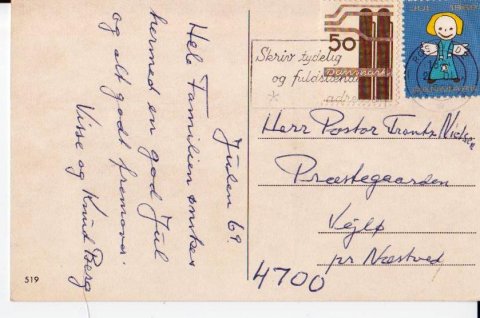 Julen 69.
Hele Familien ønskes
hermed en god Jul
og alt godt fremover.
Visse og Knud Berg
519
50
Danmark
Skriv tydelig
og fuldstændig
Herr Pastor Frantz Nielsen
Præstegaarden
Vejlø
pr Næstved
4700